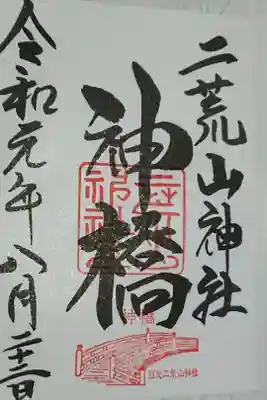 二荒山神社
神橋
令和元年八月二十三日
神橋
日光二荒山神社